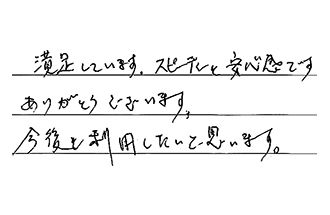 満足しています。スピーディと安心感です
ありがとうございます。
今後も利用したいと思います。